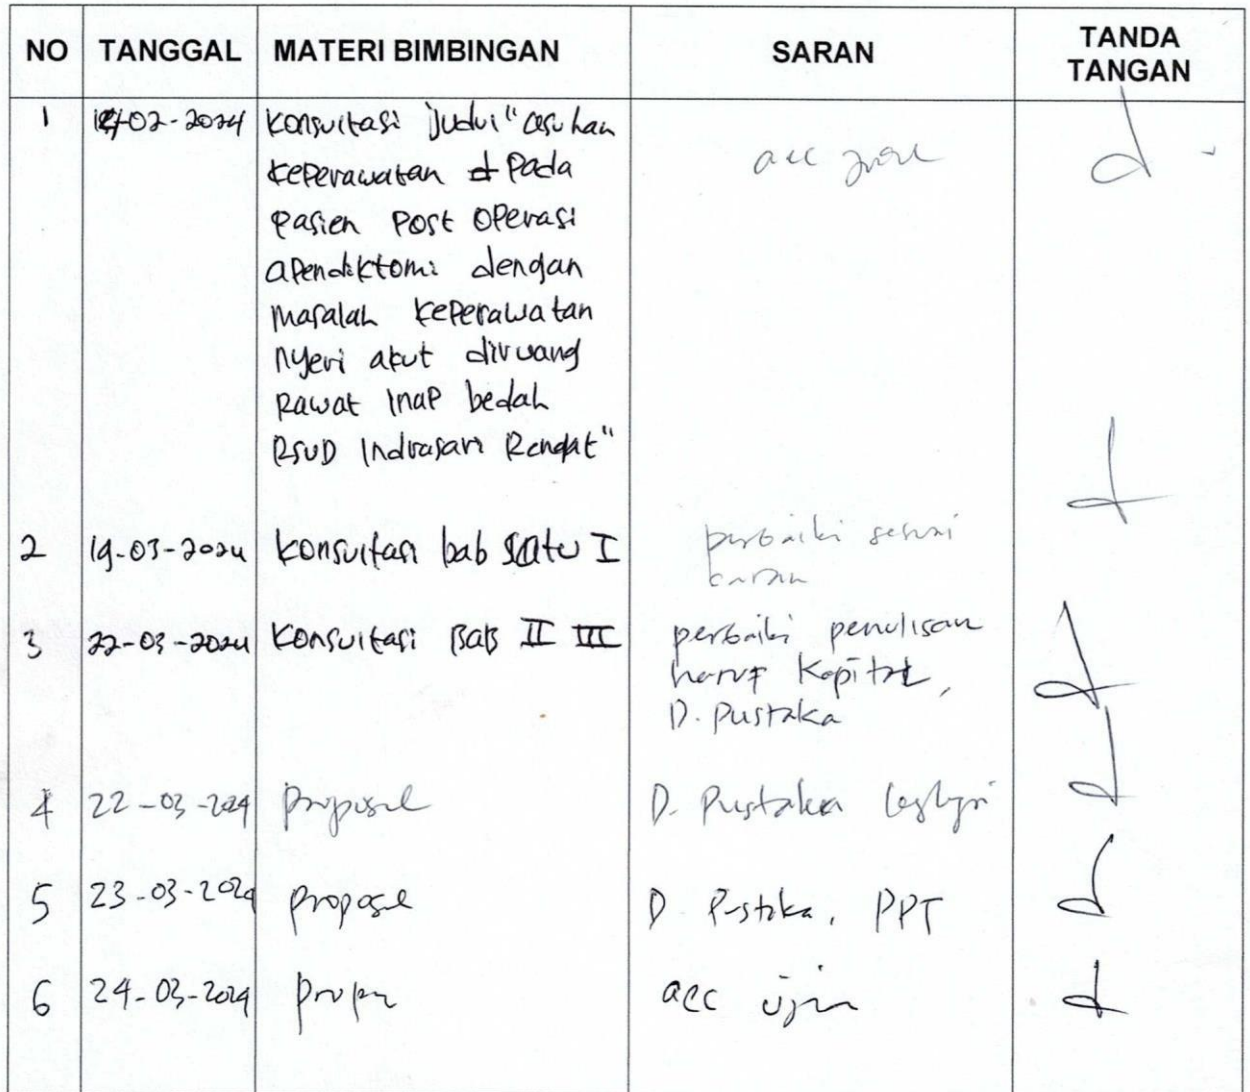 NO TANGGAL MATERI BIMBINGAN SARAN TANDA TANGAN
1 -02-2024 Konsultasi judul "asuhan acc
keperawatan pada
pasien post operasi
apendiktomi dengan
masalah keperawatan
nyeri akut diruang
rawat inap bedah
RSUD Indrasari Rengat"
2 19-03-2024 Konsultasi bab satu I perbaiki sesuai
saran
3 22-03-2024 Konsultasi Bab II III perbaiki penulisan
huruf Kapital,
D. Pustaka
4 22-03-2024 proposal D. Pustaka
5 23-03-2024 proposal D Pustaka, PPT
6 24-03-2024 acc ujian